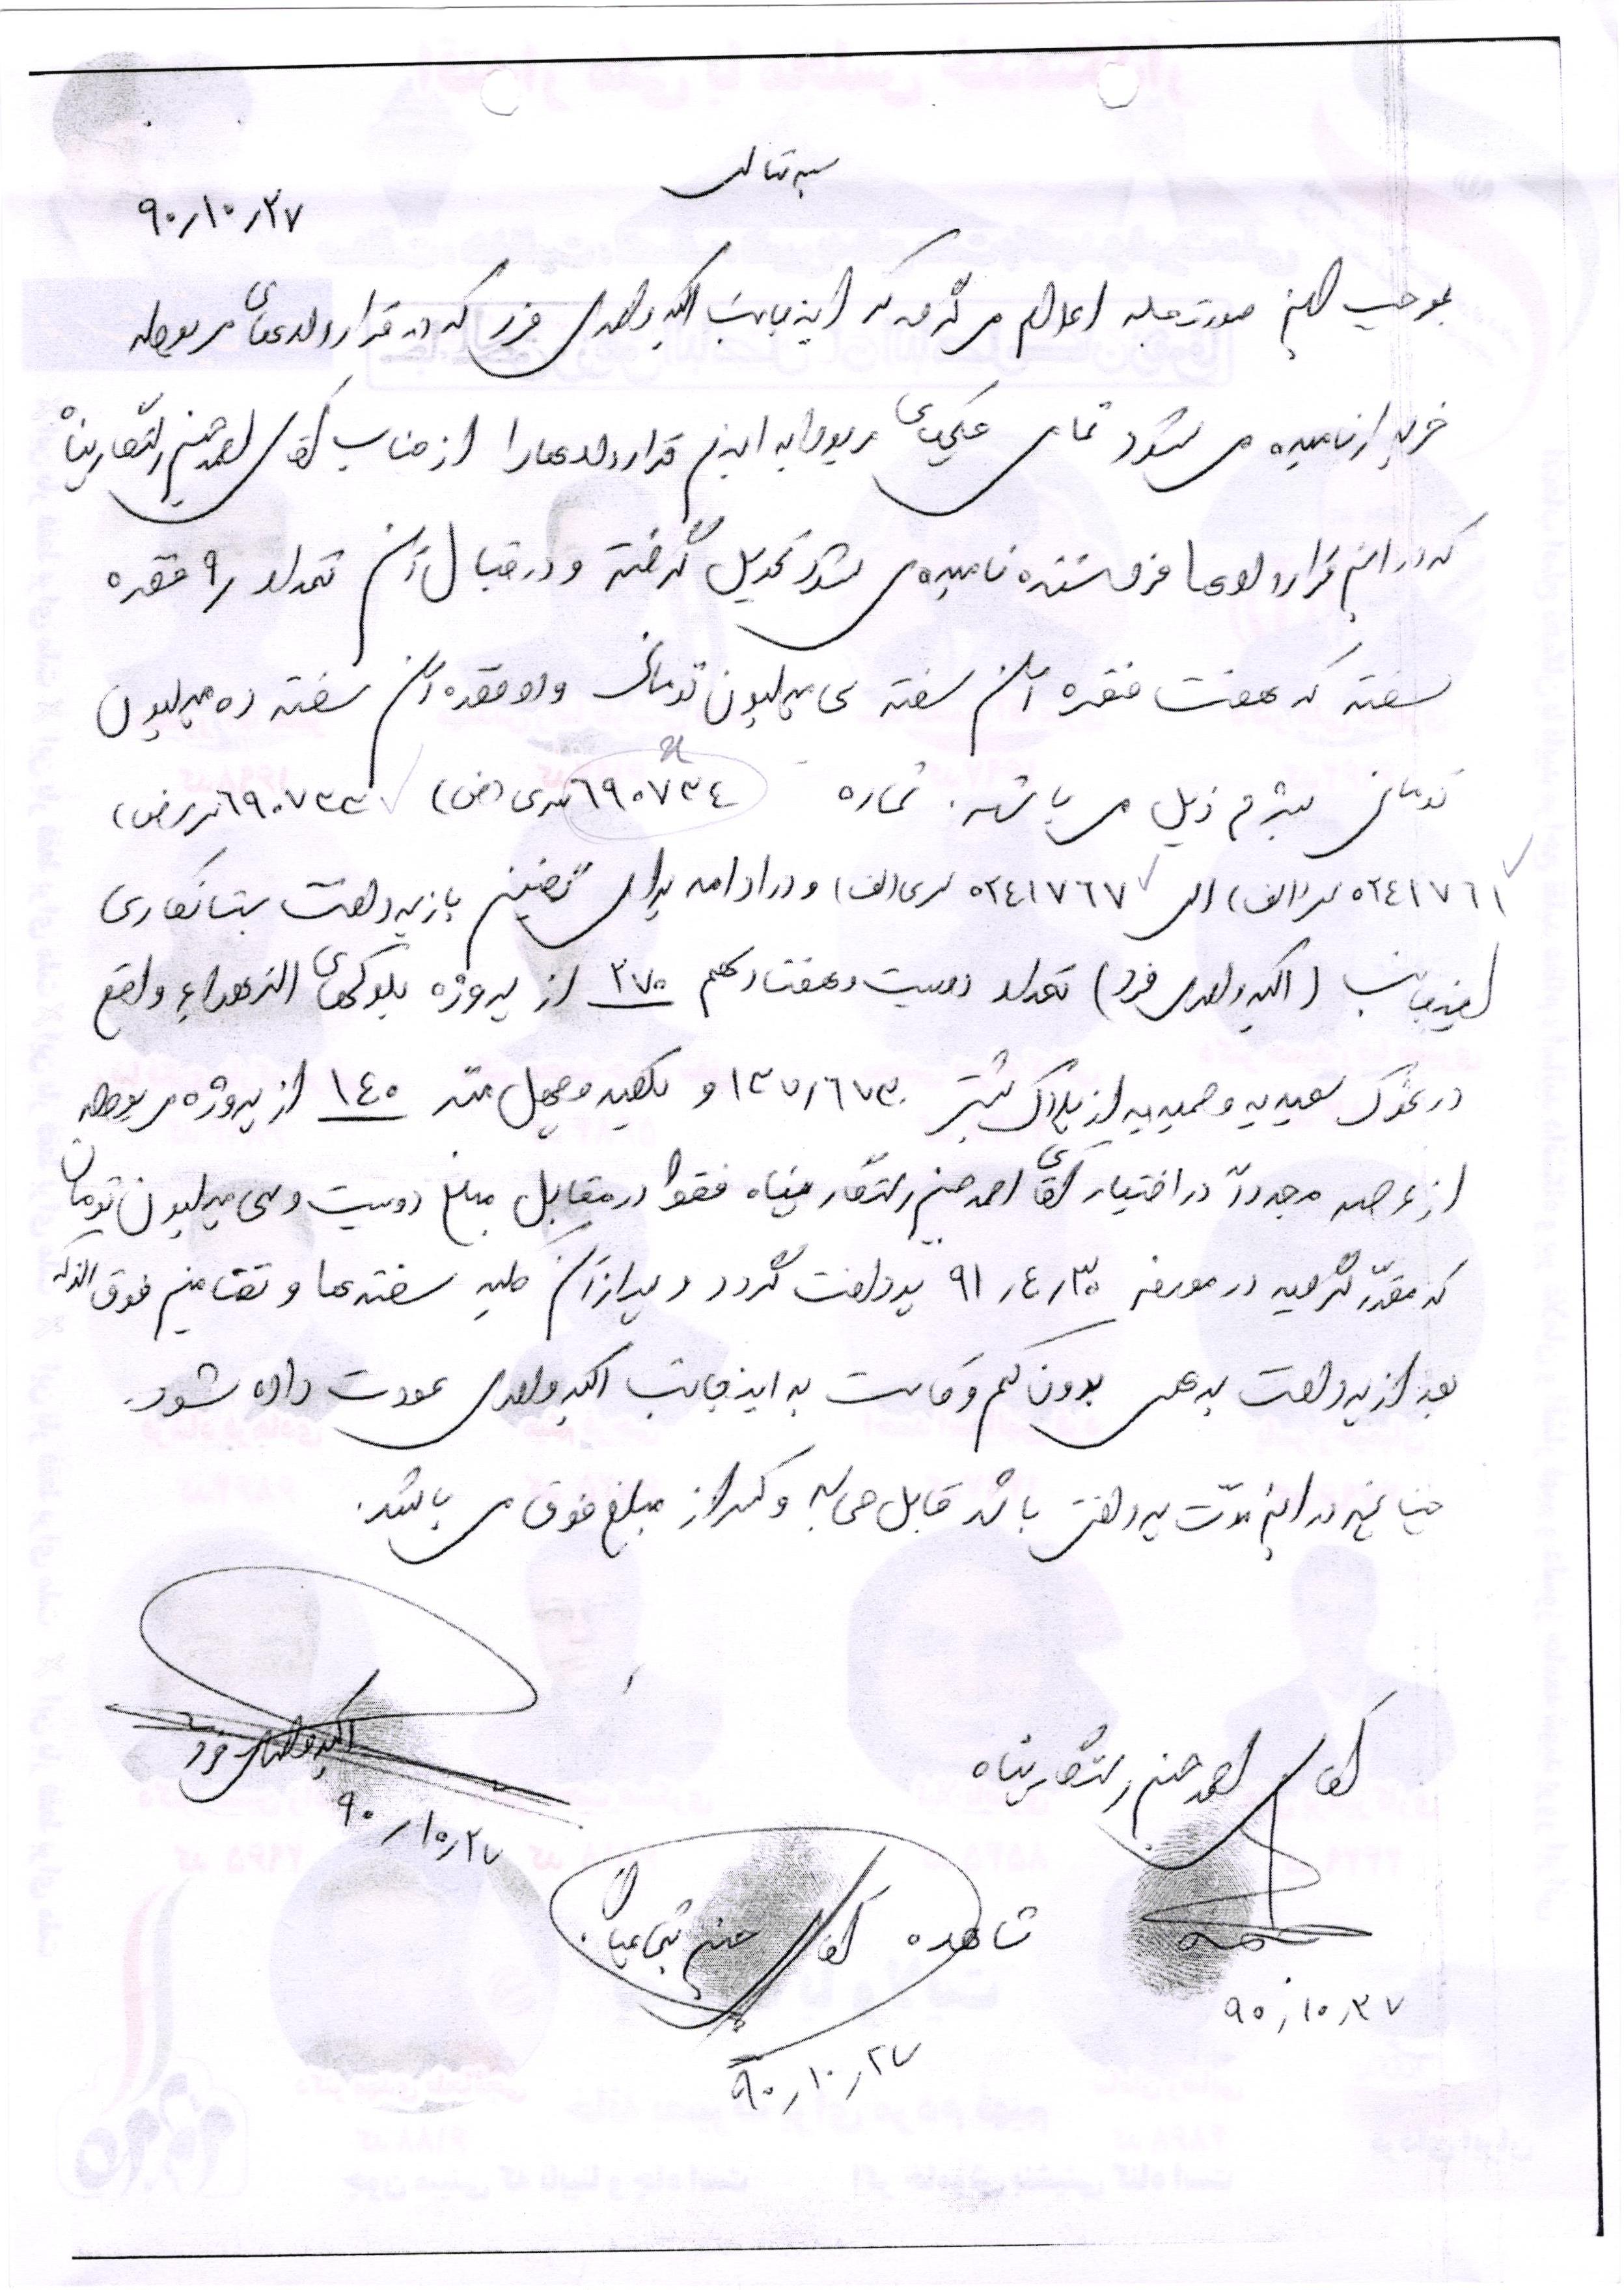 بسمه تعالی
۹۰/۱۰/۲۷
بموجب این صورت جلسه اعلام می گردد که اینجانب اکبر واحدی فرد که در قراردادهای مربوطه
خریدار نامیده می شود تمامی چکهای مربوط به این قراردادها را از جناب آقای احمد حسین رستگارپناه
که در این قراردادها فروشنده نامیده می شود تحویل گرفته و در قبال آن تعداد ۹ فقره
سفته که هفت فقره آن سفته سی میلیون تومانی و دو فقره آن سفته ده میلیون
تومانی بشرح ذیل می باشد. شماره ۶۹۰۷۳۴ سری (ض) ۶۹۰۷۳۳ سری (ض)
۰۲۴۱۷۶۱ سری (الف) الی ۰۲۴۱۷۶۷ سری (الف) و در ادامه برای تضمین بازپرداخت بستانکاری
اینجانب (اکبر واحدی فرد) تعداد دویست و هفتاد سهم ۲۷۰ از پروژه بلوکهای الزهراء واقع
در شهرک سعیدیه و حمیدیه از پلاک ثبتی ۱۳۷/۶۷۳ و یکصد و چهل متر ۱۴۰ از پروژه مربوطه
از عرصه مجدداً در اختیار آقای احمد حسین رستگارپناه فقط در مقابل مبلغ دویست و سی میلیون تومان
که مقرر گردید در مورخه ۹۱/۴/۳۰ پرداخت گردد و پس از آن کلیه سفته ها و تضامین فوق الذکر
بعد از پرداخت بدهی بدون کم و کاست به اینجانب اکبر واحدی عودت داده شود.
چنانچه در این مدت پرداختی باشد قابل محاسبه و کسر از مبلغ فوق می باشد.
آقای احمد حسین رستگارپناه
اکبر واحدی فرد
۹۰/۱۰/۲۷
شاهد آقای حسین
۹۰/۱۰/۲۷
۹۰/۱۰/۲۷